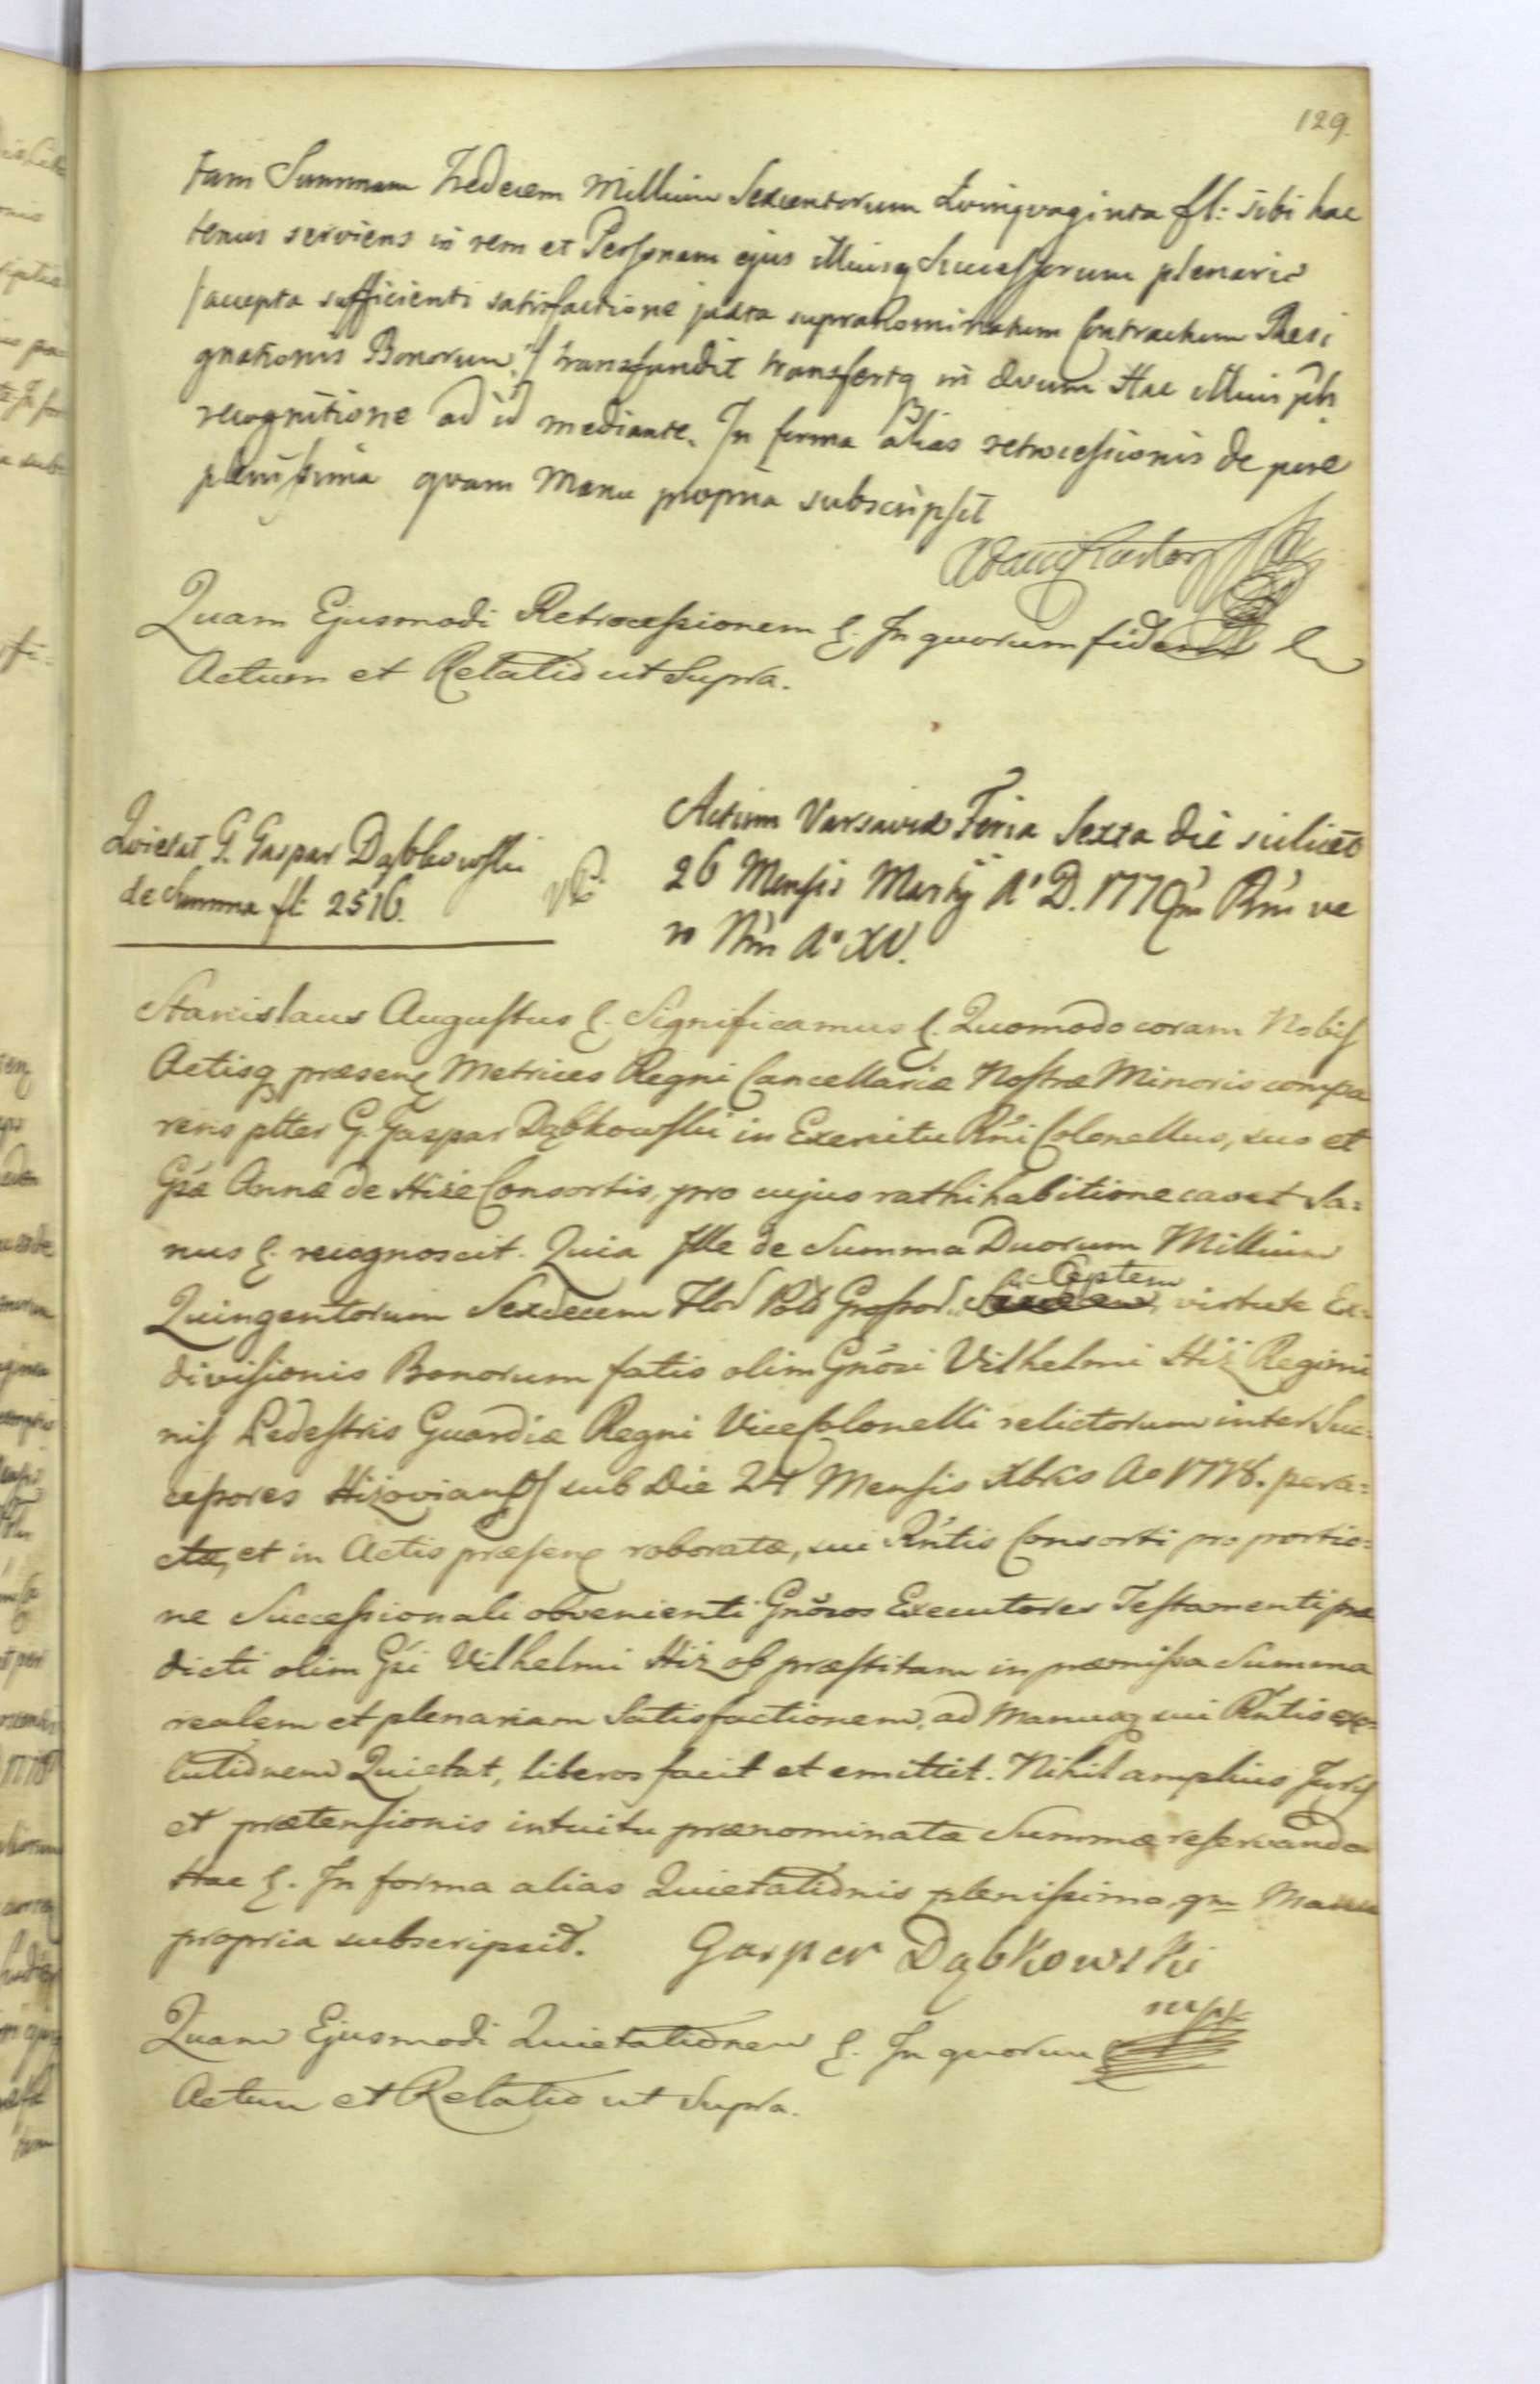 129.
tam Summam Tredecem Millium Sexcentorum Qvinqvaginta fl: sibi hac
tenus serviens in rem et Personam ejus Illiusq Successorum plenarie
/accepta sufficienti satisfactione juxta supraNominatum Contractum Resi
gnationis Bonorum/ transfundit transfertq in ævum Hac Illius pñti
recognitione ad id mediante. In forma alias retrocessionis de jure
plenissima qvam Manu propria subscripsit
Quam Ejusmodi Retrocessionem &. In quorum fidem &
Actum et Relatio ut Supra.
Qvietat G. Gaspar Dąbkowski
de Summa fl: 2516.
Actum Varsaviæ Feria Sexta die scilicet
26 Mensis Martij A° D. 1779 Rñi ve
ro Nri A° XV.
Stanislaus Augustus &. Significamus &. Quomodo coram Nobis
Actisq præsen Metrices Regni Cancellariæ Nostræ Minoris compa
rens plter G. Gaspar Dąbkowski in Exercitu Rñi Colonellus, suo et
Gsæ Annæ de Hize Consortis, pro cujus rathihabitione cavet Sa=
nus &. recognoscit. Quia Ille de Summa Duorum Millium
Quingentorum Sexdecem Flor Pol Grossor. Septem virtute Ex=
divisionis Bonorum fatis olim Gnõsi Vilhelmi Hiż Regimi
nis Pedestris Guardiæ Regni ViceColonelli relictorum inter Suc=
cessores Hizovianos sub Die 24 Mensis Xbris Ao 1778. pera=
ctæ, et in Actis præsen roboratæ, sui Rñtis Consorti pro portio=
ne Successionali obvenienti Gnõsos Executores Testamenti præ
dicti olim Gsi Vilhelmi Hiz ob præstitam in præmissa Summa
realem et plenariam Satisfactionem, ad Manusq sui Rñtis exo=
lutionem Quietat, liberos facit et emittit. Nihil amplius Juris
et prætensionis intuitu prænominatæ Summæ reservando
Hac &. In forma alias Quietationis plenissima, qm Manu
propria subscripsit. Gasper Dąbkowski
mpp
Quam Ejusmodi Quietationem &. In quorum
Actum et Relatio ut Supra.